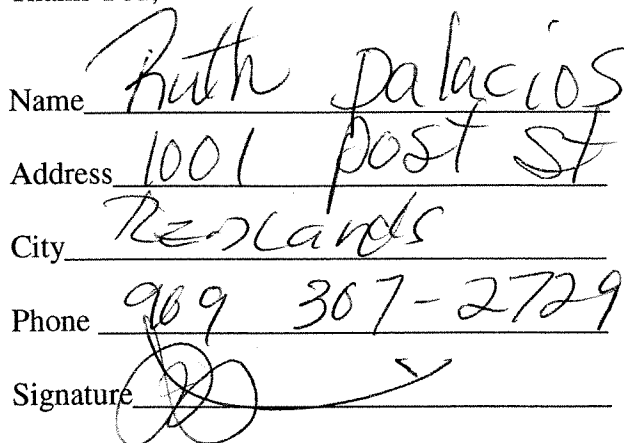 Name Ruth Palacios
Address 1001 post st
City Redlands
Phone 909 307-2729
Signature